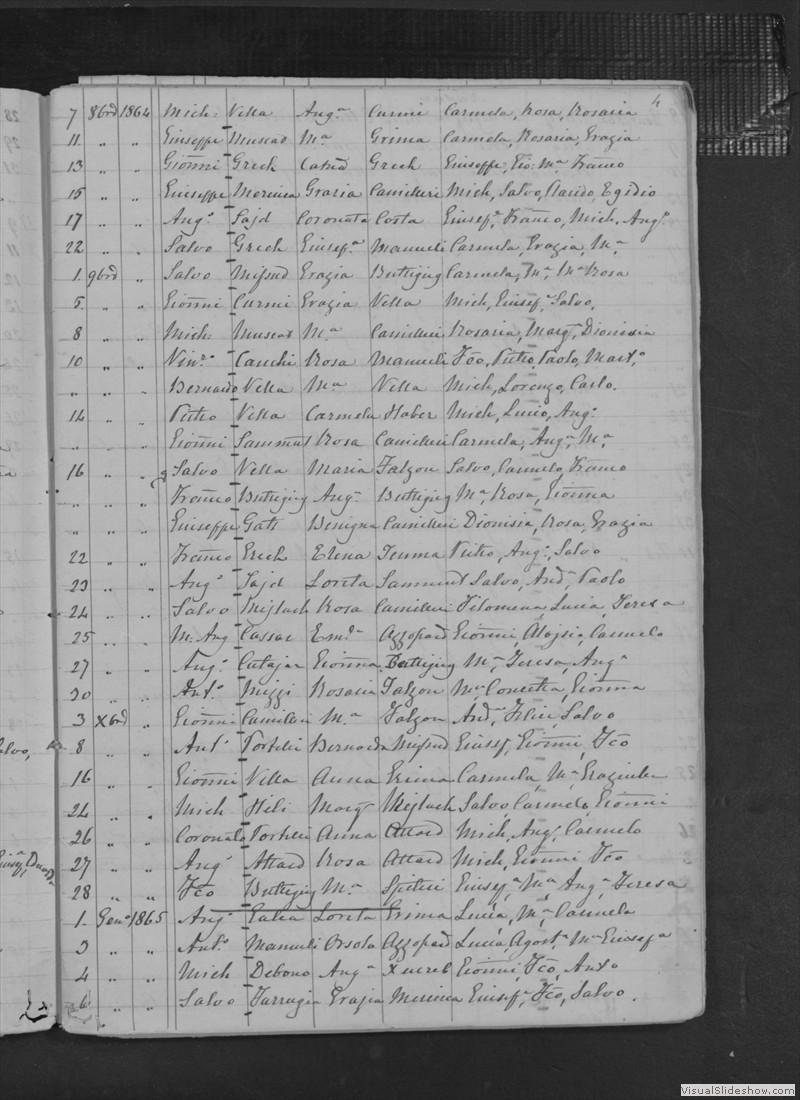 4
7 8brd 1864 Mich: Vella Ang.a Curmi Carmela, Rosa, Rosaria
11 " " Giuseppe Muscat M.a Grima Carmela, Rosaria, Grazia
13 " " Gionni Grech Grech Giuseppe, Gio: M.a Franco
15 " " Giuseppe Mercieca Grazia Camilleri Mich, Salvo, Egidio
17 " " Ang.o Sajd Coronata Costa Giusef.e, Franco, Mich. Ang.o
22 " " Salvo Grech Giusef.a Mamueli Carmela, Grazia, M.a
1 9brd " Salvo Mifsud Grazia Buttigieg Carmela, M.a Rosa
5 " " Gionni Curmi Grazia Vella Mich, Giusef.e Salvo,
8 " " Mich: Muscat M.a Camilleri Rosaria, Marg.a, Dionisia
10 " " Vinc.o Cauchi Rosa Mamueli Fco, Pietro, Paolo, Mart.o
" " " Bernardo Vella M.a Vella Mich, Lorenzo, Carlo.
14 " " Pietro Vella Carmela Haber Mich, Lucio, Ang.o
" " " Gionni Sammut Rosa Camilleri Carmela, Ang.a, M.a
16 " " Salvo Vella Maria Falzon Salvo, Carmelo, Franco
" " " Franco Buttigieg Ang.a Buttigieg M.a, Rosa, Gionna
" " " Giuseppe Gatt Benigna Camilleri Dionisia, Rosa, Grazia
22 " " Franco Grech Elena Teuma Pietro, Ang.o, Salvo
23 " " Ang.o Sajd Loreta Sammut Salvo, And.a, Paolo
24 " " Salvo Mejlach Rosa Camilleri Filomena, Lucia, Teresa
25 " " M. Ang Cassar Azzopard Gionni, Aloysia, Carmelo
27 " " Ang.o Cutajar Gionna Buttigieg M.a, Teresa, Ang.a
30 " " Ant.o Mizzi Rosaria Falzon M.a Concetta, Gionna
3 Xbrd " Gionni Camilleri M.a Falzon And.a, Felice, Salvo
8 " " Ant.o Portelli Bernarda Mifsud Giusef, Gionni, Fco
16 " " Gionni Vella Anna Grima Carmela, M.a
24 " " Mich Heli Marg.a Mejlach Salvo, Carmelo, Gionni
26 " " Coronato Portelli Anna Attard Mich, Ang.o, Carmelo
27 " " Ang.o Attard Rosa Attard Mich, Gionni Fco
28 " " Fco Buttigieg M.a Spiteri Giusef.a, M.a Ang.a, Teresa
1 Gen.o 1865 Ang.o Galea Loreta Grima Lucia, M.a, Carmela
3 " " Ant.o Mamueli Orsola Azzopard Lucia, Agost.a, M.a Giusefa
4 " " Mich Debono Ang.a Xuereb Gionni Fco, Anto
6 " " Salvo Farrugia Grazia Mercieca Giusef.a, Fco, Salvo.
VisualSlideshow.com